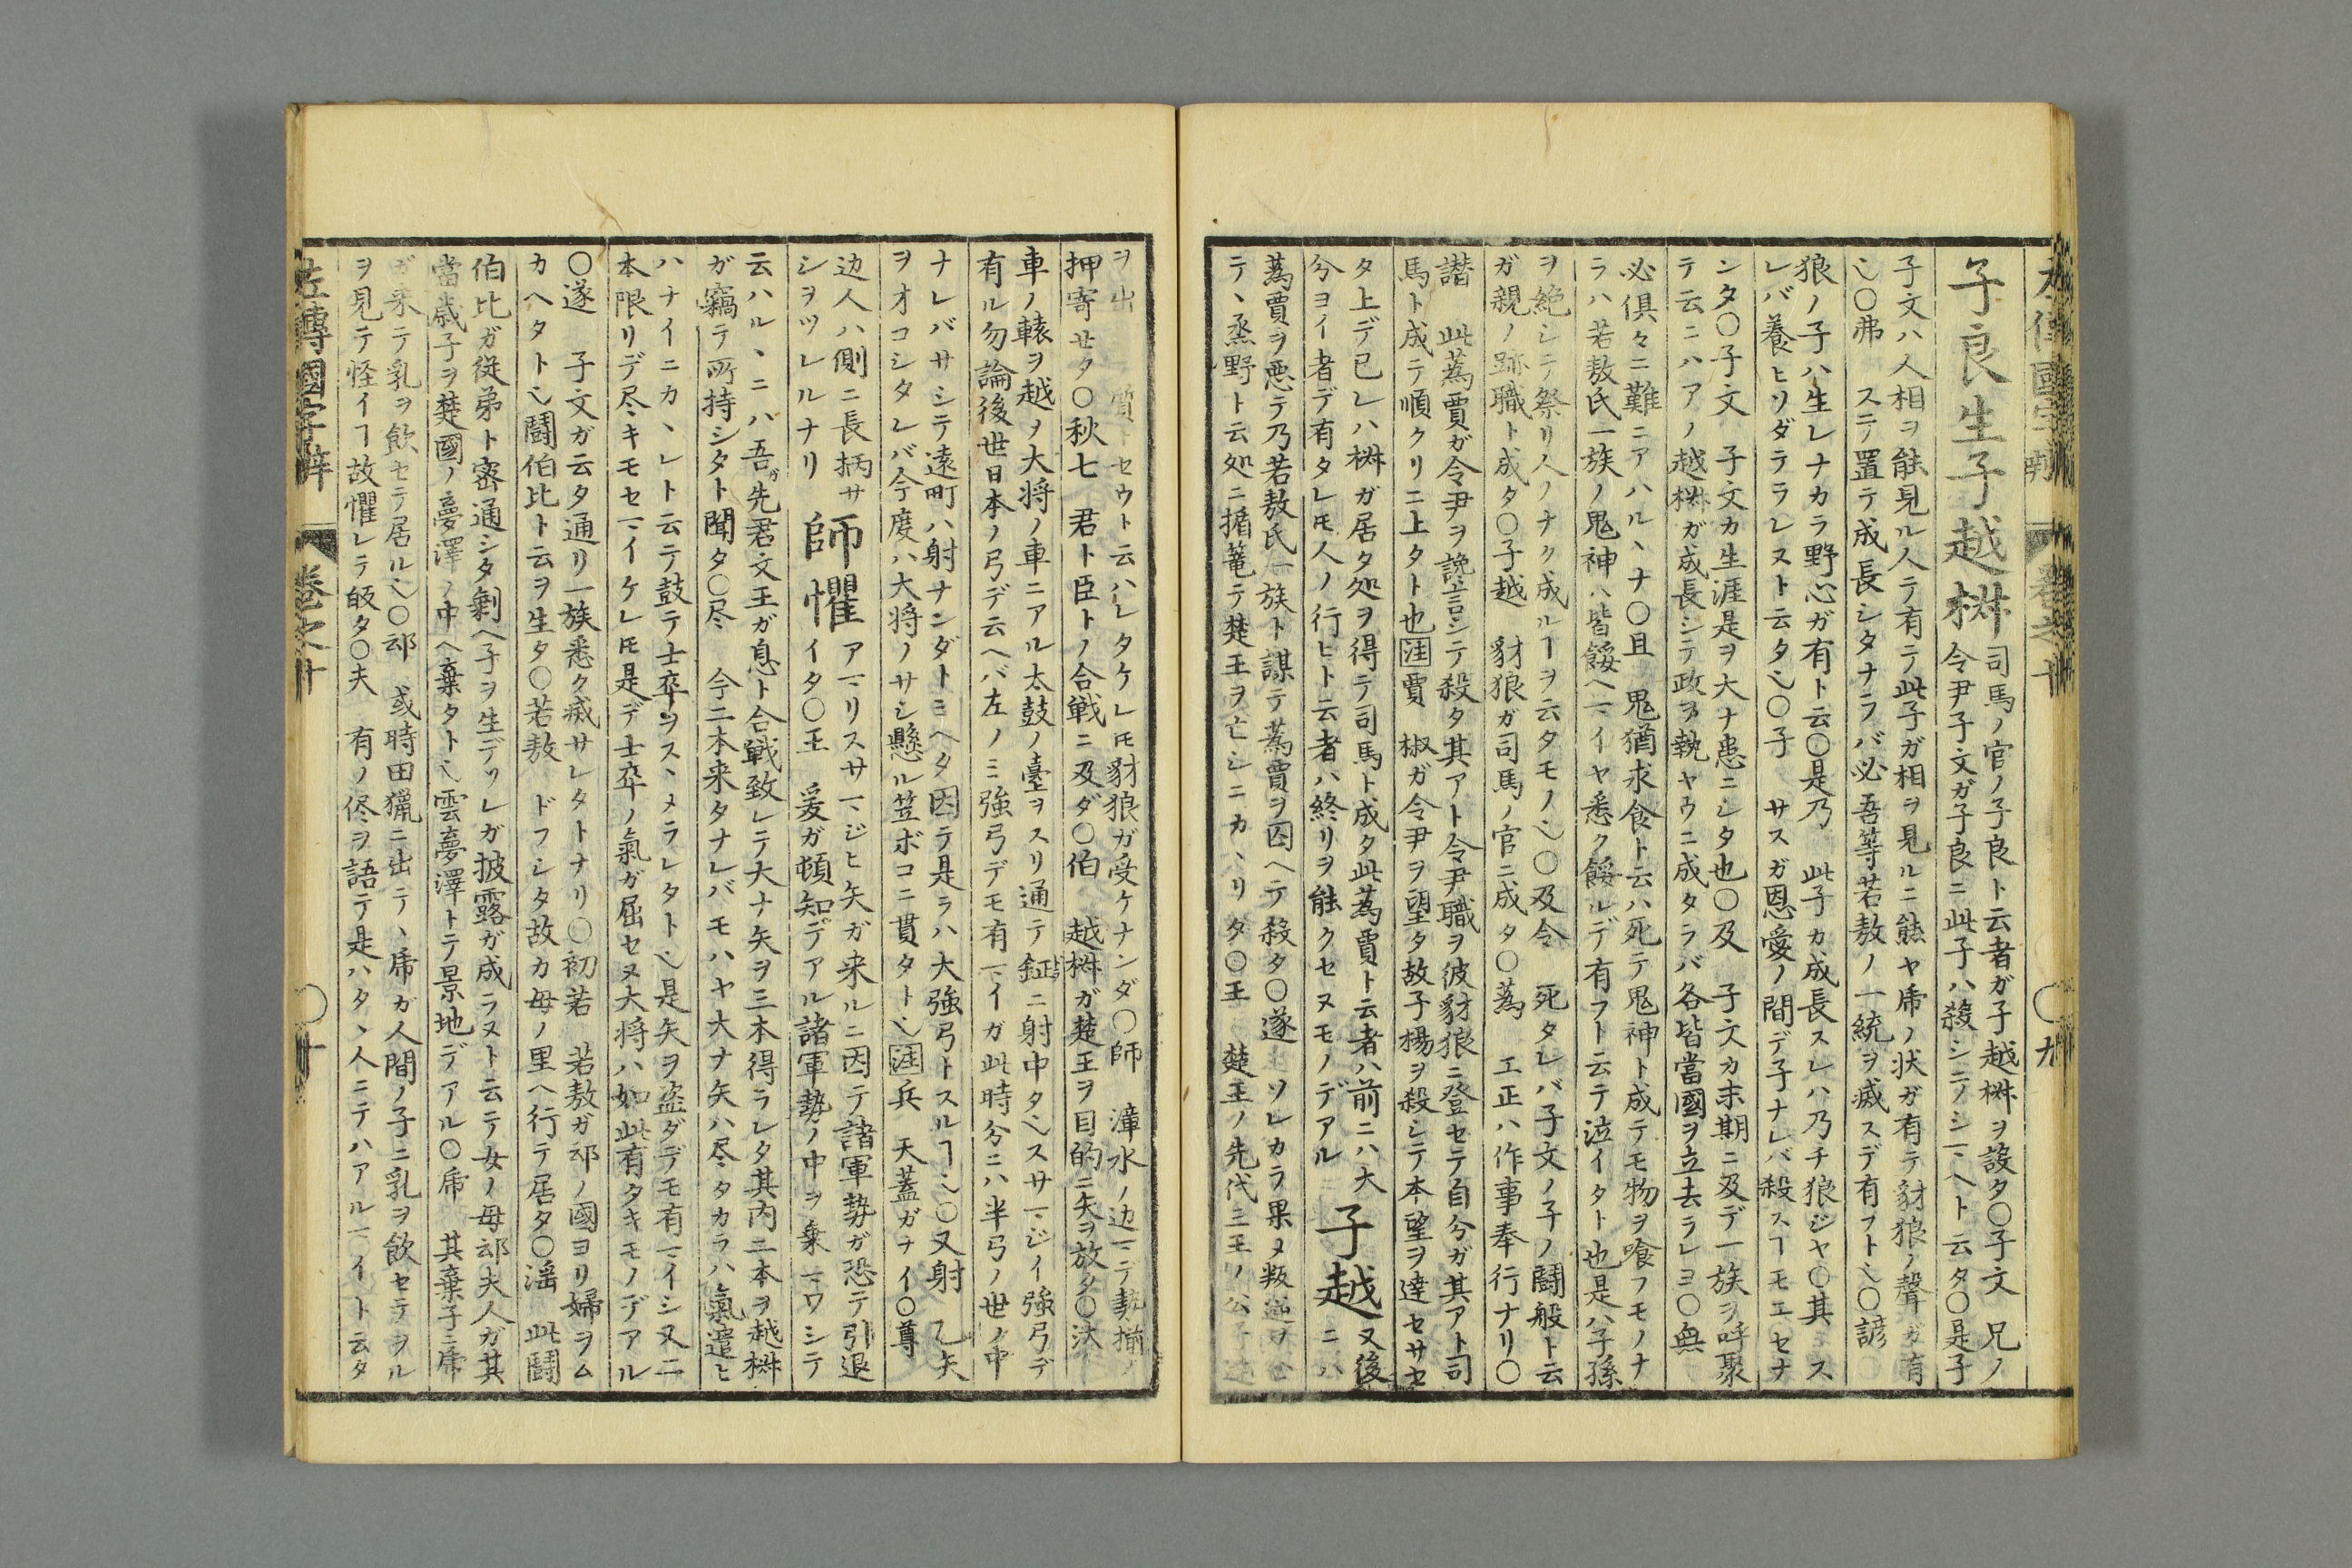 左傳國字辯 卷之十 〇九
子良生子越椒
司馬ノ官ノ子良ト云者ガ子越椒ヲ設タ〇子文 兄ノ
令尹子文ガ子良ニ此子ハ殺シテノシマヘト云タ〇是子
子文ハ人相ヲ能見ル人テ有テ此子ガ相ヲ見ルニ熊ヤ虎ノ状ガ有テ豺狼ノ聲ガ有
〇弗 ステ置テ成長シタナラバ必吾等若敖ノ一統ヲ滅スデ有フト〇諺
狼ノ子ハ生レナカラ野心ガ有ト云〇是乃 此子カ成長スレハ乃チ狼ジヤ〇其 ス
レバ養ヒリダラランヌト云タ〇子 サスガ恩愛ノ間デ子ナレバ殺スヿモエセナ
ンタ〇子文 子文カ生涯是ヲ大ナ患ニシタ也〇及 子文カ末期ニ及デ一族ヲ呼聚
テ云ニハアノ越椒ガ成長シテ政ヲ執ヤウニ成タラバ各皆當國ヲ立去ラレヨ〇無
必倶々ニ難ニアハルヽナ〇且 鬼猶求食ト云ハ死テ鬼神ト成テモ物ヲ喰フモノナ
ラハ若敖氏一族ノ鬼神ハ皆餒ヘマイヤ悉ク餒ルデ有フト云テ泣イタト也是ハ子孫
ヲ絶シテ祭リ人ノナク成ルヿヲ云タモノ〇及令 死タレバ子文ノ子ノ闘般ト云
ガ親ノ跡職ト成タ〇子越 豺狼ガ司馬ノ官ニ成タ〇蔿 工正ハ作事奉行ナリ〇
譛 此蔿賈ガ令尹ヲ讒言シテ殺タ其アト令尹職ヲ彼豺狼ニ登セテ自分ガ其アト司
馬ト成テ順クリニ上タト也注賈 椒ガ令尹ヲ望タ故子楊ヲ殺シテ本望ヲ達セサセ
タ上デ己レハ椒ガ居タ処ヲ得テ司馬ト成タ此蔿賈ト云者ハ前ニハ大
分ヨイ者デ有タレ𪜈人ノ行ヒト云者ハ終リヲ能クセヌモノデアル
子越
又後
ニハ
蔿賈ヲ悪テ乃若敖氏一族ト謀テ蔿賈ヲ囚ヘテ殺タ〇遂 ソレカラ果メ叛逆ヲ
テヽ烝野ト云処ニ楯篭テ楚王ヲ亡シニカヽリタ〇王 楚王ノ先代三王ノ公子
ヲ出 質トセウト云ハレタケレ𪜈豺狼ガ受ケナンダ〇師 漳水ノ边マテ勢揃ノ
押寄セタ〇秋七 君ト臣トノ合戦ニ及ダ〇伯 越椒ガ楚王ヲ目的ニ矢ヲ放タ〇汰
車ノ轅ヲ越ヲ大将ノ車ニアル太鼓ノ臺ヲスリ通テ鉦ニ射中タスサマジイ強弓デ
有ル勿論後世日本ノ弓デ云ヘバ左ノミ強弓デモ有マイガ此時分ニハ半弓ノ世ノ中
ナレバサシテ遠町ハ射ナンダトミヘタ因テ是ラハ大強弓トスルヿ〇又射 乙矢
ヲオコシタレバ今度ハ大将ノサシ懸ル笠ボコニ貫タト注兵 天蓋ガナイ〇尊
边人ハ側ニ長柄サ
シヲツレルナリ
師懼
アマリスサマジヒ矢ガ来ルニ因テ諸軍勢ガ恐テ引退
イタ〇王 爰ガ頓知デアル諸軍勢ノ中ヲ乗マワシテ
云ハルヽニハ吾ガ先君文王ガ息ト合戦致レテ大ナ矢ヲ三本得ラレタ其内二本ヲ越椒
ガ竊テ所持シタト聞タ〇尽 今二本来タナレバモハヤ大ナ矢ハ尽タカラハ氣遣ヒ
ハナイニカヽレト云テ鼓テ士卒ヲスヽメラレタト是矢ヲ盗ダデモ有マイシ又二
本限リデ尽キモセマイケレ𪜈是デ士卒ノ氣ガ屈セヌ大将ハ如此有タキモノデアル
〇遂 子文ガ云タ通リ一族悉ク滅サレタトナリ〇初若 若敖ガ䢵ノ國ヨリ婦ヲム
カヘタト闘伯比ト云ヲ生タ〇若敖 ドフシタ故カ母ノ里ヘ行テ居タ〇淫 此闘
伯比ガ従弟ト密通シタ剰ヘ子ヲ生デソレガ披露ガ成ラヌト云テ女ノ母䢵夫人ガ其
當歳子ヲ楚國ノ夢澤ノ中ヘ棄タト雲夢澤トテ景地デアル〇虎 其棄子ニ虎
ガ来テ乳ヲ飲セテ居ル〇䢵 或時田獵ニ出テヽ虎ガ人間ノ子ニ乳ヲ飲セテヲル
ヲ見テ怪イヿ故懼レテ皈タ〇夫 有ノ侭ヲ語テ是ハタヽ人ニテハアルマイト云タ
左傳國字辯 卷之十 〇十